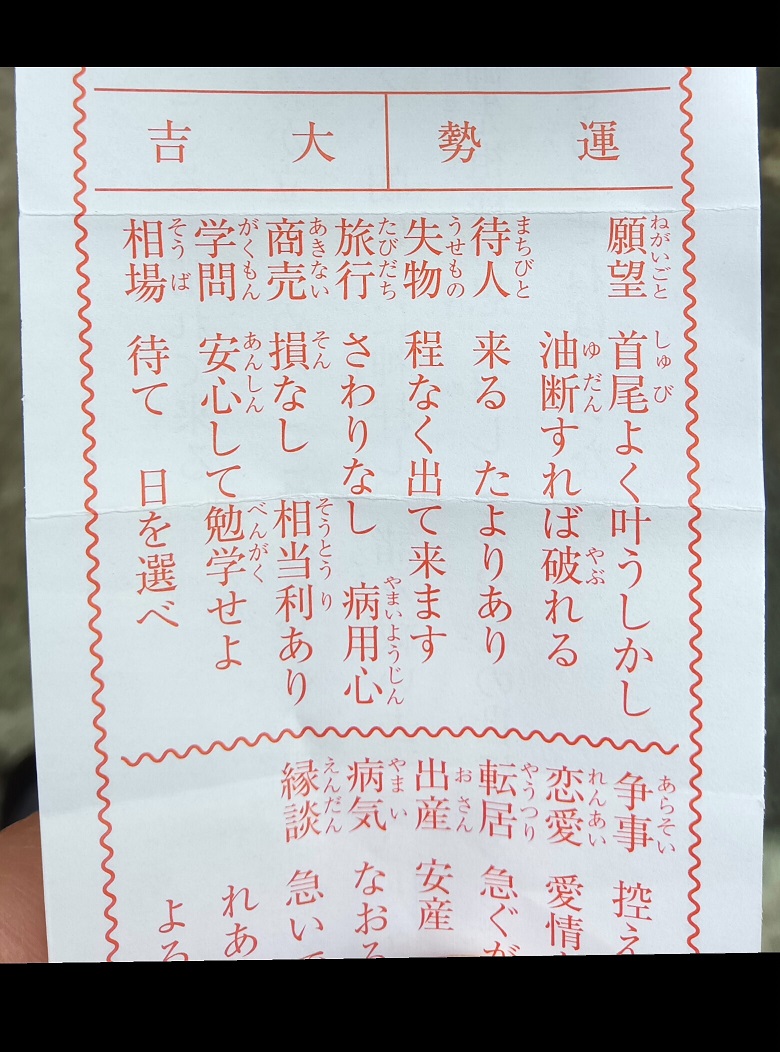 運勢
大吉
願望 首尾よく叶うしかし
ねがいごと しゅび
油断すれば破れる
ゆだん やぶ
待人 来る たよりあり
まちびと
失物 程なく出て来ます
うせもの
旅行 さわりなし 病用心
たびだち やまいようじん
商売 損なし 相当利あり
あきない そん そうとうり
学問 安心して勉学せよ
がくもん あんしん べんがく
相場 待て 日を選べ
そうば
争事 控え
あらそい
恋愛 愛情
れんあい
転居 急ぐが
やうつり
出産 安産
おさん
病気 なお
やまい
縁談 急い
えんだん
れあ
よ